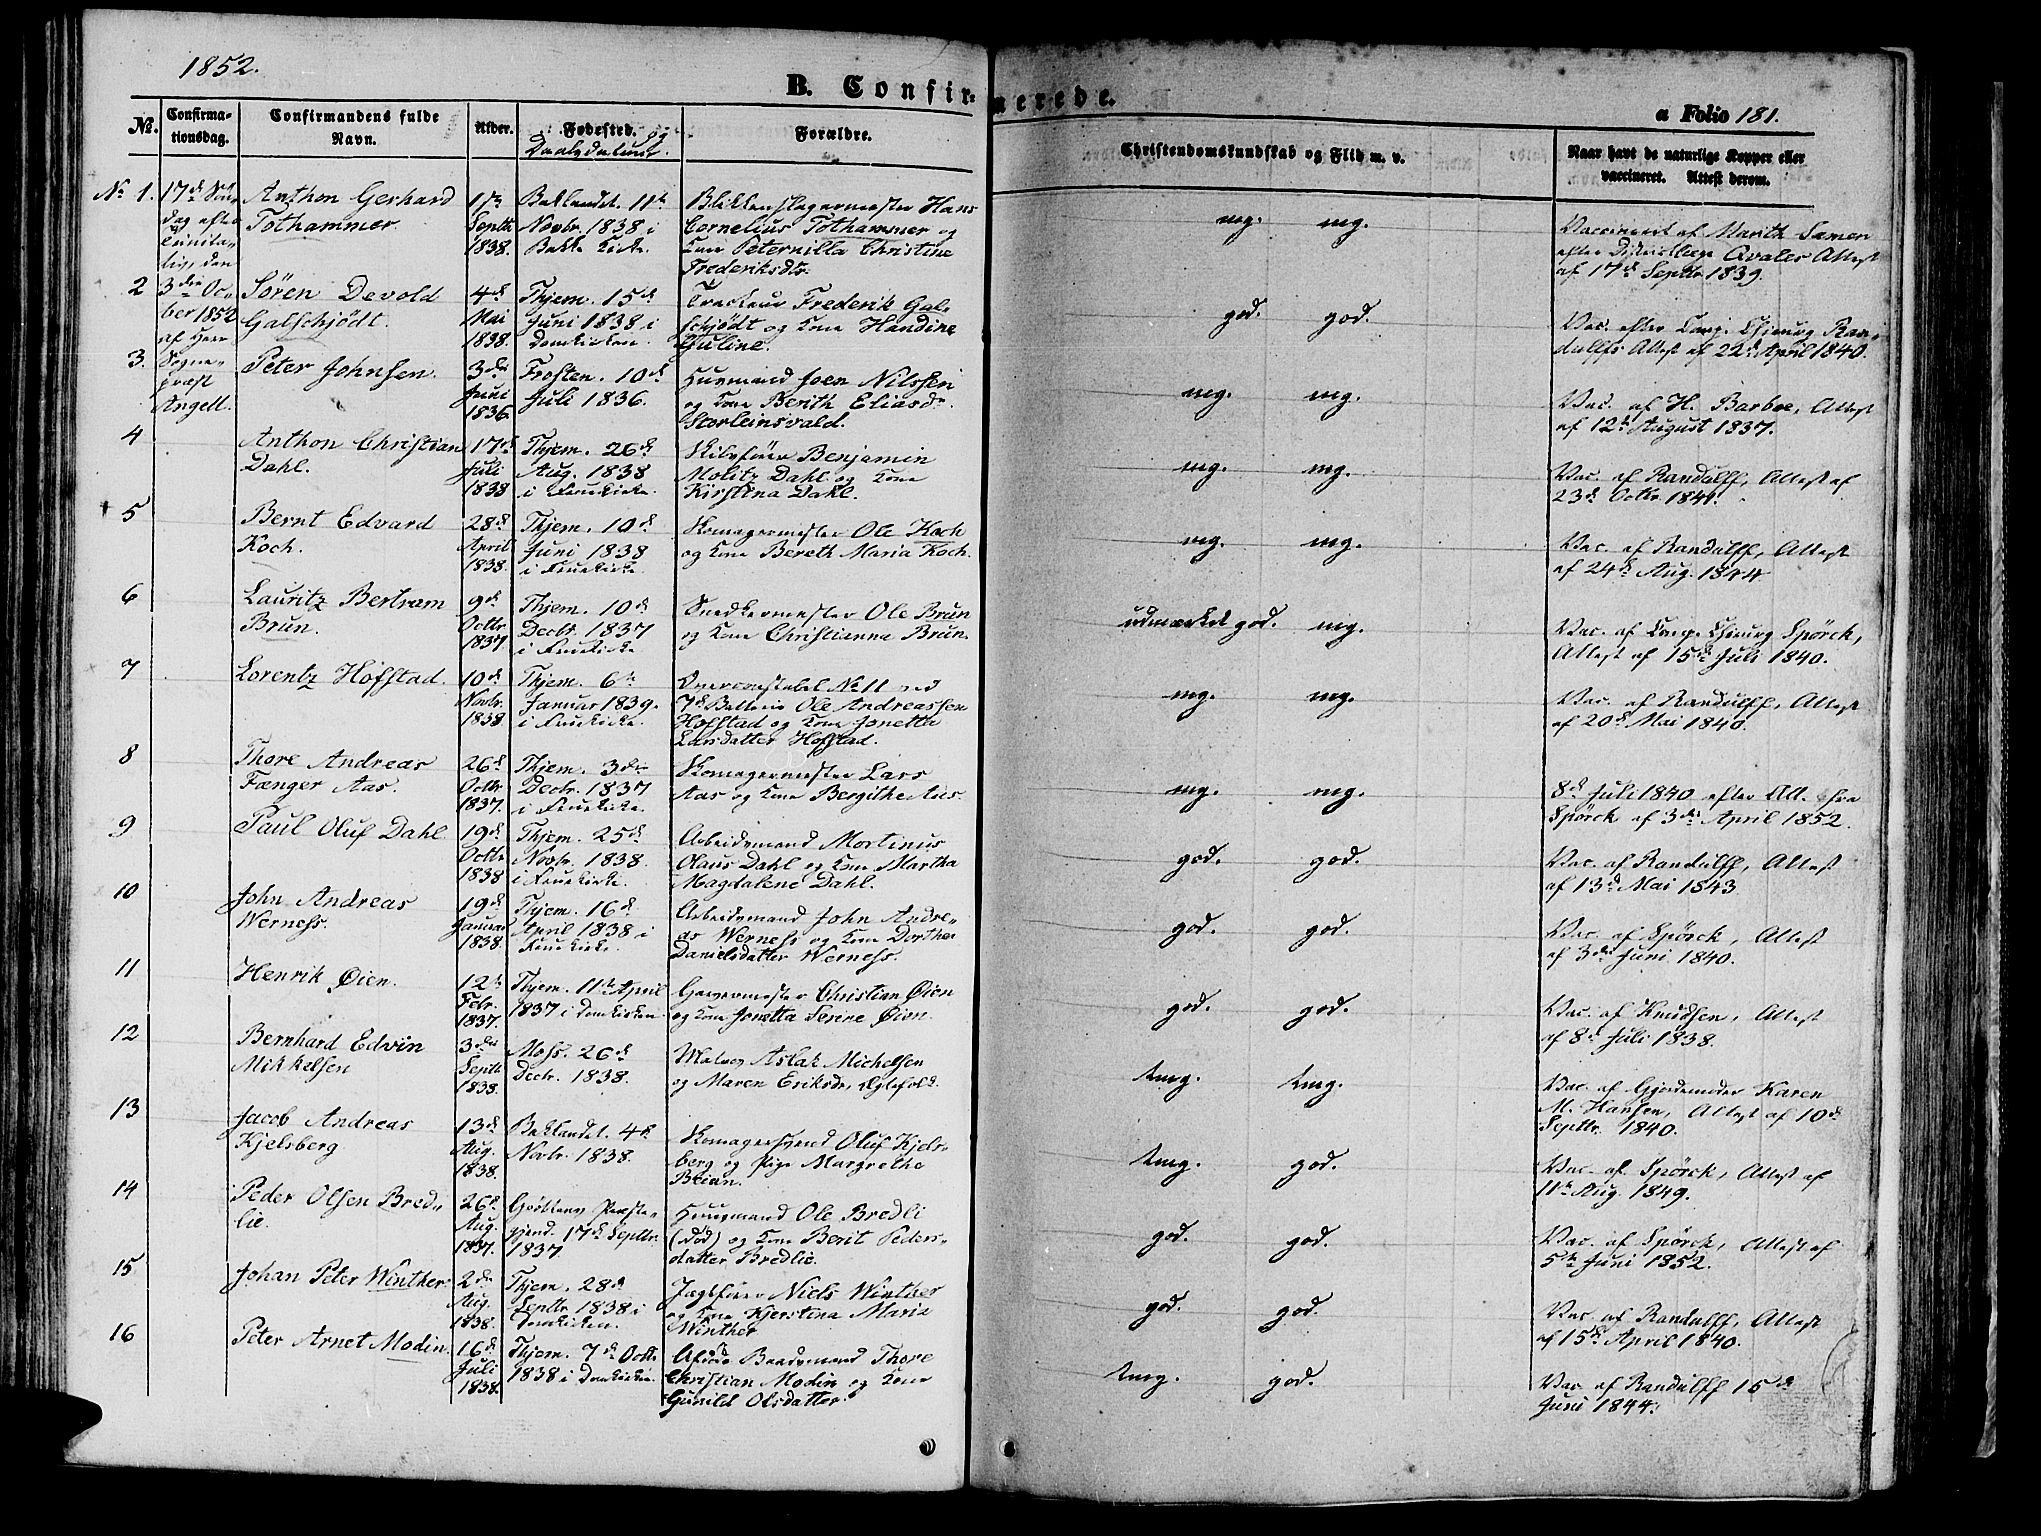 1852.
B. Confirmerede.
a Folio 181.
No. Confirmationsdag. Confirmandens fulde Navn. Alder. Fødested. og Daabsdatum. Forældre. Christendomskundskab og Flid m. v. Naar havt de naturlige Kopper eller vaccineret. Attest derom.
No 1. 17de Søn- Anthon Gerhard 17de Baklandet. 11te Blikkenslagermester Hans mg. mg. Vaccineret af Marith Samen
dag efter Tothammer. Septbr Novbr. 1838 i Cornelius Tothammer og efter Districtlæge Qvales Attest
Trinita- 1838. Bakke Kirke Kone Peternilla Christine af 17de Septbr 1839.
tis, den Frederiksdtr.
2 3die Oc- Søren Devold 4de Thjem. 15de Frederik Gal- god. god. Vac. efter Corps Chirurg Ran-
ber 1852 Galschjødt. Mai Juni 1838 i schjødt og Kone Handine dulffs Attest af 22de April 1840.
af Herr 1838. Domkirken. Juline.
3. Sogne- Peter Johnsen. 3die Frosten. 10de Huusmand Joen Nilssen mg. mg. Vac. af H. Barboe, Attest
præst Juni Juli 1836. og Kone Berith Eliasdr. af 12te August 1837.
Angell. 1836. Storleinsvald.
4 Anthon Christian 17de Thjem. 26de Skibsfører Benjamin mg. mg. Vac. af Randulff, Attest af
Dahl. Juli Aug. 1838 Molitz Dahl og Kone 23de Octbr. 1841.
1838 i Fruekirke. Kirstina Dahl.
5 Bernt Edvard 28de Thjem. 10de Skomagermester Ole Koch mg. mg. Vac. af Randulff, Attest
Koch. April Juni 1838 og Kone Bereth Maria Koch. af 24de Aug. 1844
1838. i Fruekirke
6 Lauritz Bertram 9de Thjem. 10de Snedkermester Ole Brun udmærket god. mg. Vac. af Corps Chirurg Spörck,
Brun. Octbr. Decbr. 1837 og Kone Christianna Brun. Attest af 15de Juli 1840.
1837 i Fruekirke
7 Lorentz Hofstad. 10de Thjem. 6te No 11 ved mg. mg. Vac. af Randulff, Attest
Novbr. Januar 1839. 7de Ole Andreassen af 20de Mai 1840.
1838 i Fruekirke. Hofstad og Kone Jonetta
Larsdatter Hofstad.
8 Thore Andreas 26de Thjem. 3die Skomagermester Lars mg. mg. 8de Juli 1840 efter Att. fra
Fænger Aas. Octbr. Decbr. 1837 Aas og Kone Bergithe Aas. Spörck af 3die April 1852.
1837. i Fruekirke.
9 Paul Oluf Dahl. 19de Thjem. 25de Arbeidsmand Mortinus god. god. Vac. af Randulff, Attest
Octbr. Novbr. 1838. Olaus Dahl og Kone Martha af 13de Mai 1843
1838 i Fruekirke. Magdalene Dahl.
10 John Andreas 19de Thjem. 16de Arbeidsmand John Andre- god. god. Vac. af Spörck, Attest
Werness. Januar April 1838 i as Werness og Kone Dorthea af 3die Juni 1840.
1838. Fruekirke. Danielsdatter Werness.
11 Henrik Øien. 12te Thjem. 11te April Garvermester Christian Øien god. god. Vac. af Knudsen, Attest
Febr. 1837 i Domkirken og Kone Jonetta Serine Øien. af 8de Juli 1838.
1837.
12 Bernhard Edvin 3die Moss. 26de Aslak Michelsen tmg. tmg. Vac. af Gjordemoder Karen
Mikkelsen Septbr Decbr. 1838. og Maren Eriksdr, Ægtefolk. M. Hansen, Attest af 10de
1838. Septbr. 1840.
13 Jacob Andreas 13de Baklandet. 4de Skomagersvend Oluf Kjels- tmg. god. Vac. af Spörck, Attest af
Kjelsberg Aug. Novbr. 1838. berg og Pige Margrethe 11te Aug. 1849.
1838.
14 Peder Olsen Bred- 26de Præste- Huusmand Ole Bredli god. god. Vac. af Spörck, Attest af
lie. Aug. gjeld. 17de Septbr. (død) og Kone Berit Peders- 5te Juni 1852.
1837. 1837 datter Bredlie.
15 Johan Peter Winther. 2den Thjem. 28de Jægtfører Niels Winther god. god. Vac. af Randulff, Attest
Aug. Septbr. 1838 i og Kone Kjerstina Maria af 15de April 1840.
1838. Domkirken. Winther
16 Peter Arnet Modin. 16de Thjem. 7de Octbr. Afdøde Thore tmg. god. Vac. af Randulff 15de
Juli 1838 i Domkirken. Christian Modin og Kone Juni 1844.
1838. Gunild Olsdatter.